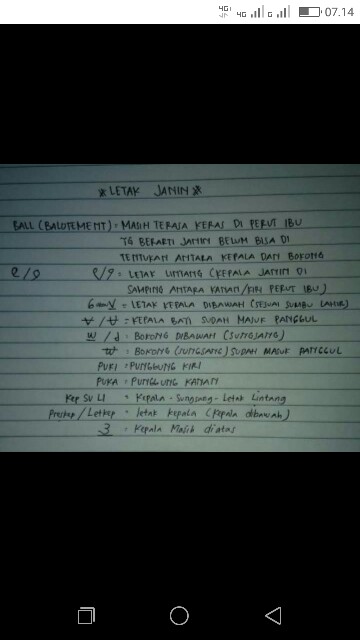 4G 4G G 07.14
* LETAK JANIN *
BALL (BALOTEMENT) = MASIH TERASA KERAS DI PERUT IBU
YG BERARTI JANIN BELUM BISA DI
TENTUKAN ANTARA KEPALA DAN BOKONG
= LETAK LINTANG (KEPALA JANIN DI
SAMPING ANTARA KANAN/KIRI PERUT IBU)
= LETAK KEPALA DIBAWAH (SESUAI SUMBU LAHIR)
= KEPALA BAYI SUDAH MASUK PANGGUL
= BOKONG DIBAWAH (SUNGSANG)
= BOKONG (SUNGSANG) SUDAH MASUK PANGGUL
PUKI = PUNGGUNG KIRI
PUKA = PUNGGUNG KANAN
Kep SU LI = Kepala - Sungsang - Letak Lintang
Preskep / Letkep = letak kepala (kepala dibawah)
3 = Kepala Masih diatas